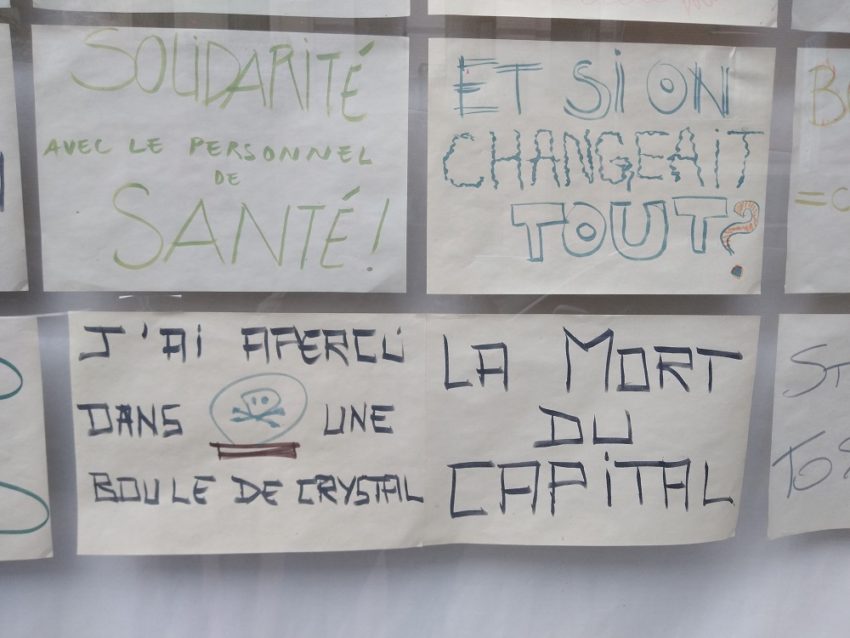 SOLIDARITÉ
AVEC LE PERSONNEL
DE
SANTÉ!
ET SI ON
CHANGEAIT
TOUT?
J'AI APERCU
DANS UNE
BOULE DE CRYSTAL
LA MORT
DU
CAPITAL
ST